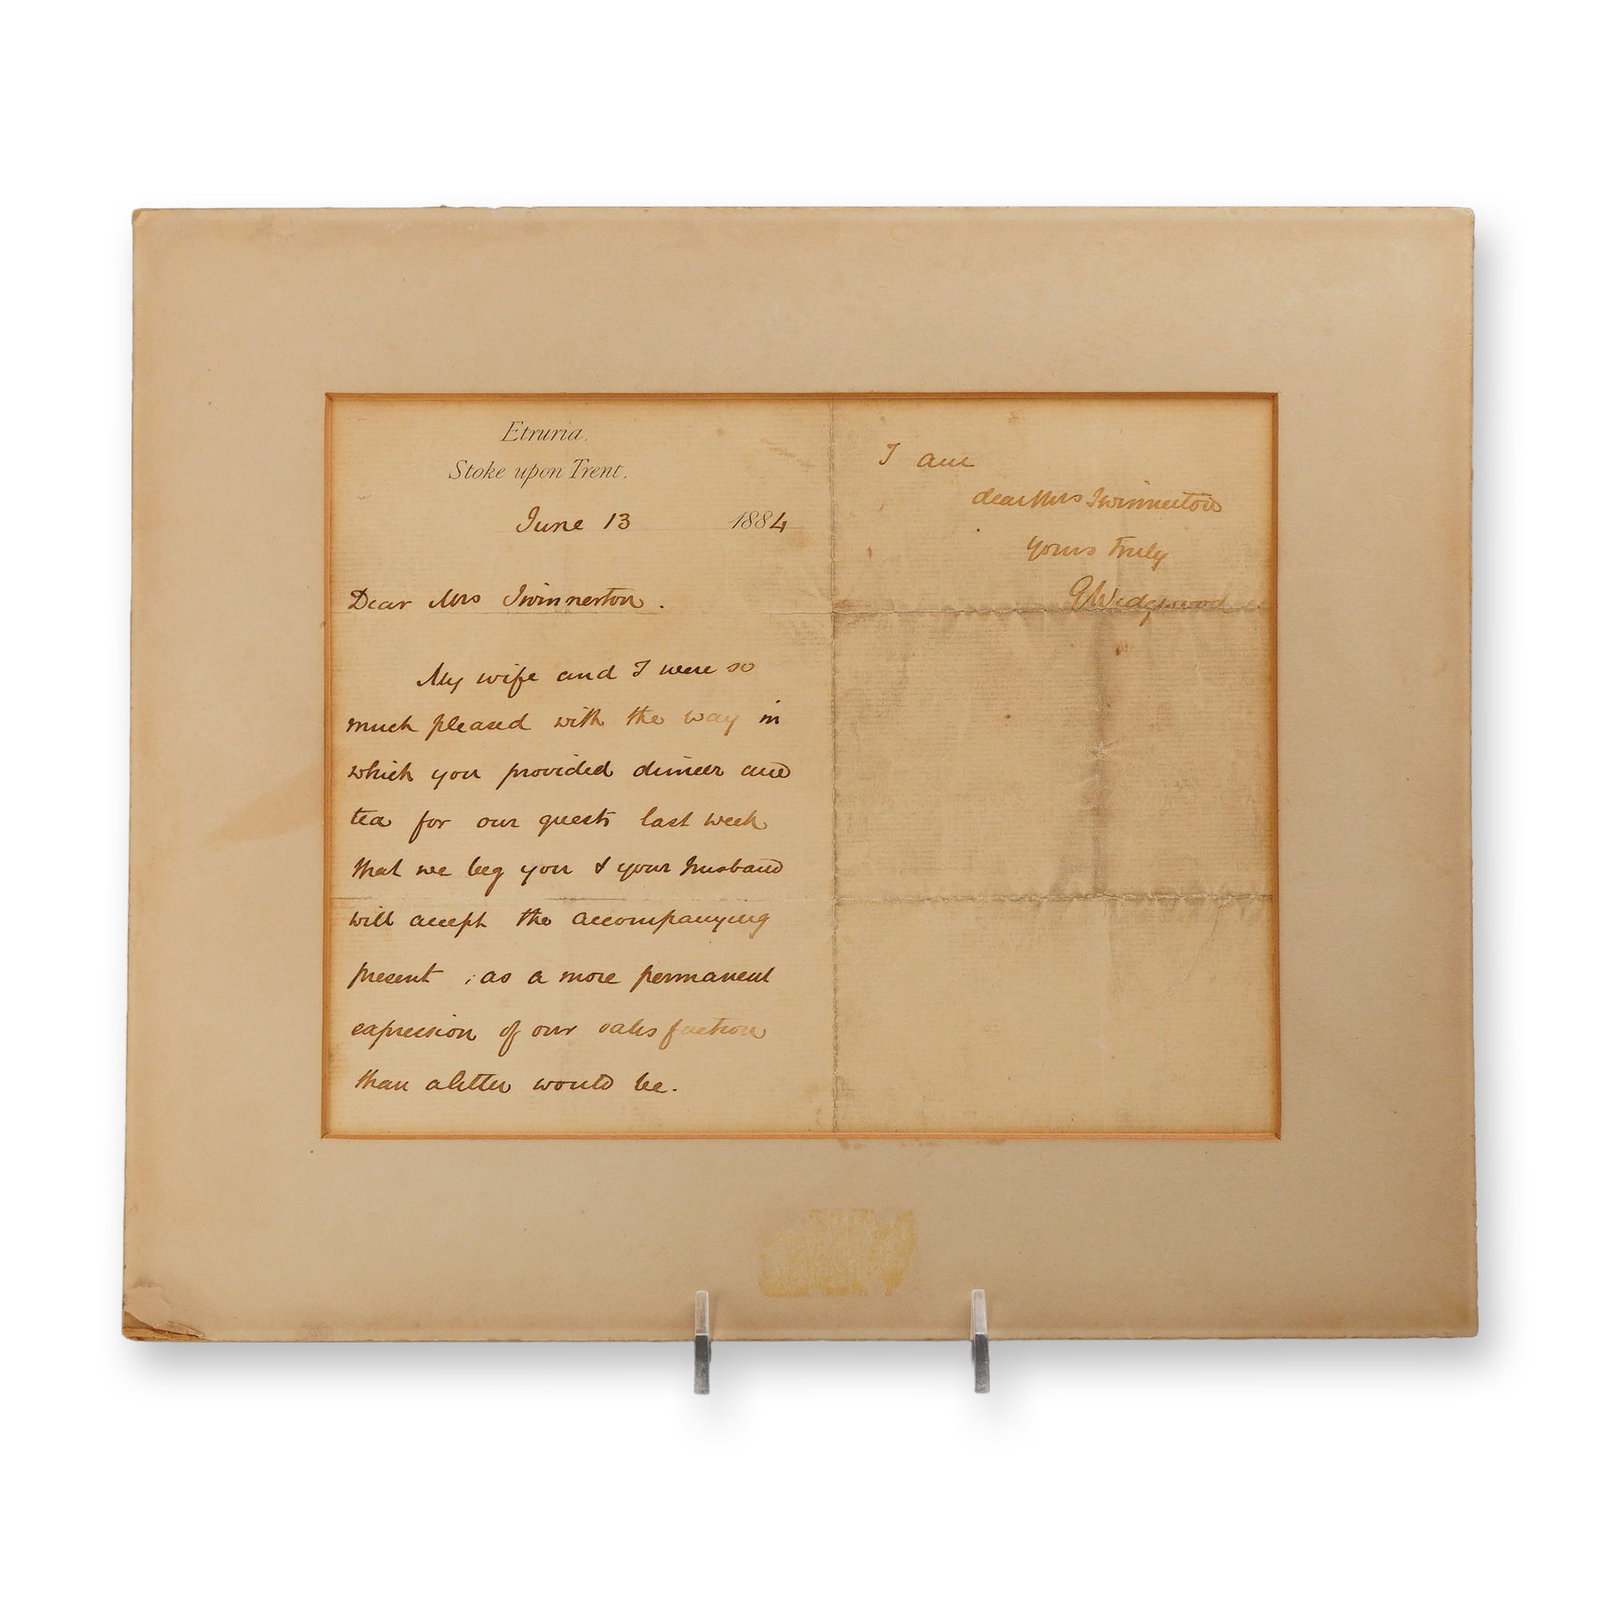 Etruria.
Stoke upon Trent.
June 13 1884
Dear Mrs Swinnerton.
My wife and I were so
much pleased with the way in
which you provided dinner and
tea for our guests last week
that we beg you & your husband
will accept the accompanying
present, as a more permanent
expression of our satisfaction
than a letter would be.
I am
dear Mrs Swinnerton
yours truly
GWedgwood